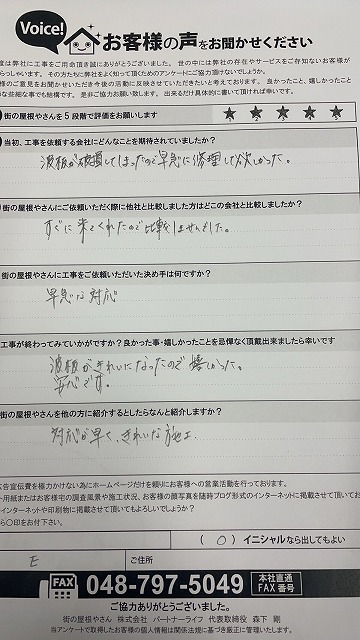 Voice!
お客様の声をお聞かせください
度は弊社に工事をご用命頂き誠にありがとうございました。 世の中には弊社の存在やサービスをご存知ないお客様が
らっしゃいます。 その方たちに弊社をよく知って頂くためのアンケートにご協力頂けないでしょうか。
様のご意見をお聞かせいただき今後の活動に反映させていただきたいと考えております。 良かったこと、嬉しかったこと
な些細な事でも結構です。 是非ご協力お願い致します。 出来るだけ具体的に書いて頂ければ幸いです。
街の屋根やさんを5段階で評価をお願いします
★ ★ ★ ★ ★
当初、工事を依頼する会社にどんなことを期待されていましたか?
波板が破損してしまったので早急に修理して欲しかった。
街の屋根やさんにご依頼いただく際に他社と比較しました方はどこの会社と比較しましたか?
すぐに来てくれたので比較しませんでした。
街の屋根やさんに工事をご依頼いただいた決め手は何ですか?
早急な対応
工事が終わってみていかがですか?良かった事・嬉しかったことを忌憚なく頂戴出来ましたら幸いです
波板がきれいになったので嬉しかった。
安心です。
街の屋根やさんを他の方に紹介するとしたらなんと紹介しますか?
対応が早く、きれいな施工
広告宣伝費を極力かけない為にホームページだけを頼りにお客様への営業活動を行っております。
ト用紙またはお客様宅の調査風景や施工状況、お客様の顔写真を随時ブログ形式のインターネットに掲載させて頂いてお
インターネットや印刷物に掲載させて頂いてもよろしいでしょうか?
ら〇印をお付下さい。
( ○ ) イニシャルなら出してもよい
E
ご住所
FAX 048-797-5049 本社直通 FAX番号
ご協力ありがとうございました。
街の屋根やさん 株式会社 パートナーライフ 代表取締役 森下 剛
当アンケートで取得したお客様の個人情報は関係法規に基づき厳正に管理いたします。